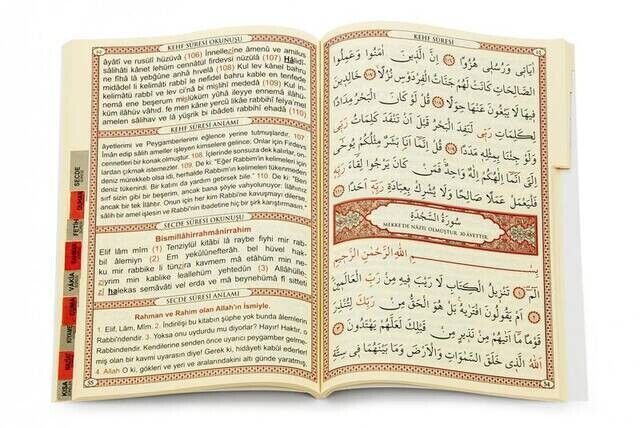 KEHF SÛRESİ OKUNUŞU
âyâtî ve rusulî hüzüvâ (106) İnnellezîne âmenû ve amilus
sâlihâti kânet lehüm cennâtül firdevsi nüzülâ (107) Hâlidî-
ne fîhâ lâ yebğûne anhâ hıvelâ (108) Kul lev kânel bahru
midâdel li kelimâti rabbî le nefidel bahru kable en tenfede
kelimâtü rabbî ve lev ci'nâ bi mislihî mededâ (109) Kul in-
nemâ ene beşerum mislüküm yûhâ ileyye ennemâ ilâhü-
küm ilâhüv vâhıd, fe men kâne yercû likâe rabbihî felya'mel
amelen sâlihav ve lâ yüşrik bi ıbâdeti rabbihî ehadâ (110)
KEHF SÛRESİ ANLAMI
âyetlerimi ve Peygamberlerimi eğlence yerine tutmuşlardır. 107.
İman edip salih ameller işleyen kimselere gelince: Onlar için Firdevs
cennetleri bir konak olmuştur. 108. İçlerinde sonsuza dek kalırlar, on-
lardan çıkmak istemezler. 109. De ki: "Eğer Rabbim'in kelimeleri için
deniz mürekkeb olsa idi, herhalde Rabbim'in kelimeleri tükenmeden
deniz tükenirdi. Bir katını da yardım getirsek bile." 110. De ki: "Ben
sırf sizin gibi bir beşerim, ancak bana şöyle vahyolunuyor: İlâhınız
ancak bir tek İlâhtır. Onun için her kim Rabbi'ne kavuşmayı dilerse,
salih bir amel işlesin ve Rabbi'nin ibadetine hiç bir şirk karıştırmasın."
SECDE SÛRESİ OKUNUŞU
Bismillâhirrahmânirrahim
Elif lâm mîm (1) Tenzîylül kitâbi lâ raybe fîyhi mir rab-
bil âlemiyn (2) Em yekûlûnefterâh, bel hüvel hak-
ku mir rabbike li tünzira kavmem mâ etâhüm min ne-
ziyrim min kablike leallehüm yehtedûn (3) Allâhülle-
zî halekas semâvâti vel erda ve mâ beynehümâ fî sitteti
SECDE SÛRESİ ANLAMI
Rahman ve Rahim olan Allah'ın İsmiyle.
1. Elif, Lâm, Mîm. 2. İndirilişi bu kitabın şüphe yok bunda âlemlerin
Rabbi'ndendir. 3. Yoksa onu uydurdu mu diyorlar? Hayır! Haktır, o
Rabbi'ndendir. Kendilerine senden önce uyarıcı peygamber gelme-
miş olan bir kavmi uyarasın diye! Gerek ki, hidâyeti kabûl ederler!
4. Allah O ki, gökleri ve yeri ve aralarındakini altı günde yaratmış,
55
SECDE
DUHAN
FETH
VAKIA
CUMA
KISA
KEHF SÛRESİ
اٰيَاتِى وَرُسُلِى هُزُوًا ﴿١٠٦﴾ اِنَّ الَّذِينَ اٰمَنُوا وَعَمِلُوا
الصَّالِحَاتِ كَانَتْ لَهُمْ جَنَّاتُ الْفِرْدَوْسِ نُزُلًا ﴿١٠٧﴾ خَالِدِينَ
فِيهَا لَا يَبْغُونَ عَنْهَا حِوَلًا ﴿١٠٨﴾ قُلْ لَوْ كَانَ الْبَحْرُ مِدَادًا
لِكَلِمَاتِ رَبِّى لَنَفِدَ الْبَحْرُ قَبْلَ اَنْ تَنْفَدَ كَلِمَاتُ رَبِّى
وَلَوْ جِئْنَا بِمِثْلِهِ مَدَدًا ﴿١٠٩﴾ قُلْ اِنَّمَا اَنَا بَشَرٌ مِثْلُكُمْ يُوحٰى
اِلَىَّ اَنَّمَا اِلٰهُكُمْ اِلٰهٌ وَاحِدٌ فَمَنْ كَانَ يَرْجُوا لِقَاءَ رَبِّهِ
فَلْيَعْمَلْ عَمَلًا صَالِحًا وَلَا يُشْرِكْ بِعِبَادَةِ رَبِّهِ اَحَدًا ﴿١١٠﴾
سُورَةُ السَّجْدَةِ
MEKKE'DE NÂZİL OLMUŞTUR. 30 ÂYETTİR.
بِسْمِ اللّٰهِ الرَّحْمٰنِ الرَّحِيمِ
الٓمٓ ﴿١﴾ تَنْزِيلُ الْكِتَابِ لَا رَيْبَ فِيهِ مِنْ رَبِّ الْعَالَمِينَ ﴿٢﴾
اَمْ يَقُولُونَ افْتَرٰيهُ بَلْ هُوَ الْحَقُّ مِنْ رَبِّكَ لِتُنْذِرَ
قَوْمًا مَا اَتٰيهُمْ مِنْ نَذِيرٍ مِنْ قَبْلِكَ لَعَلَّهُمْ يَهْتَدُونَ ﴿٣﴾
اَللّٰهُ الَّذِى خَلَقَ السَّمٰوَاتِ وَالْاَرْضَ وَمَا بَيْنَهُمَا فِى سِتَّةِ
54